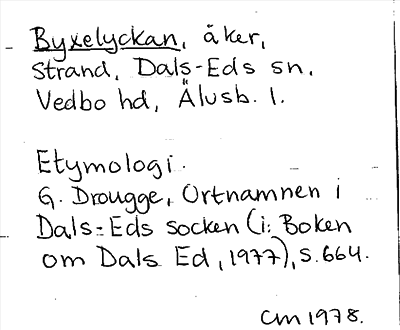 Byxelyckan, åker,
Strand, Dals-Eds sn.
Vedbo hd, Älvsb. l.
Etymologi.
G. Drougge, Ortnamnen i
Dals-Eds socken (i: Boken
om Dals Ed, 1977), s. 664.
CM 1978.